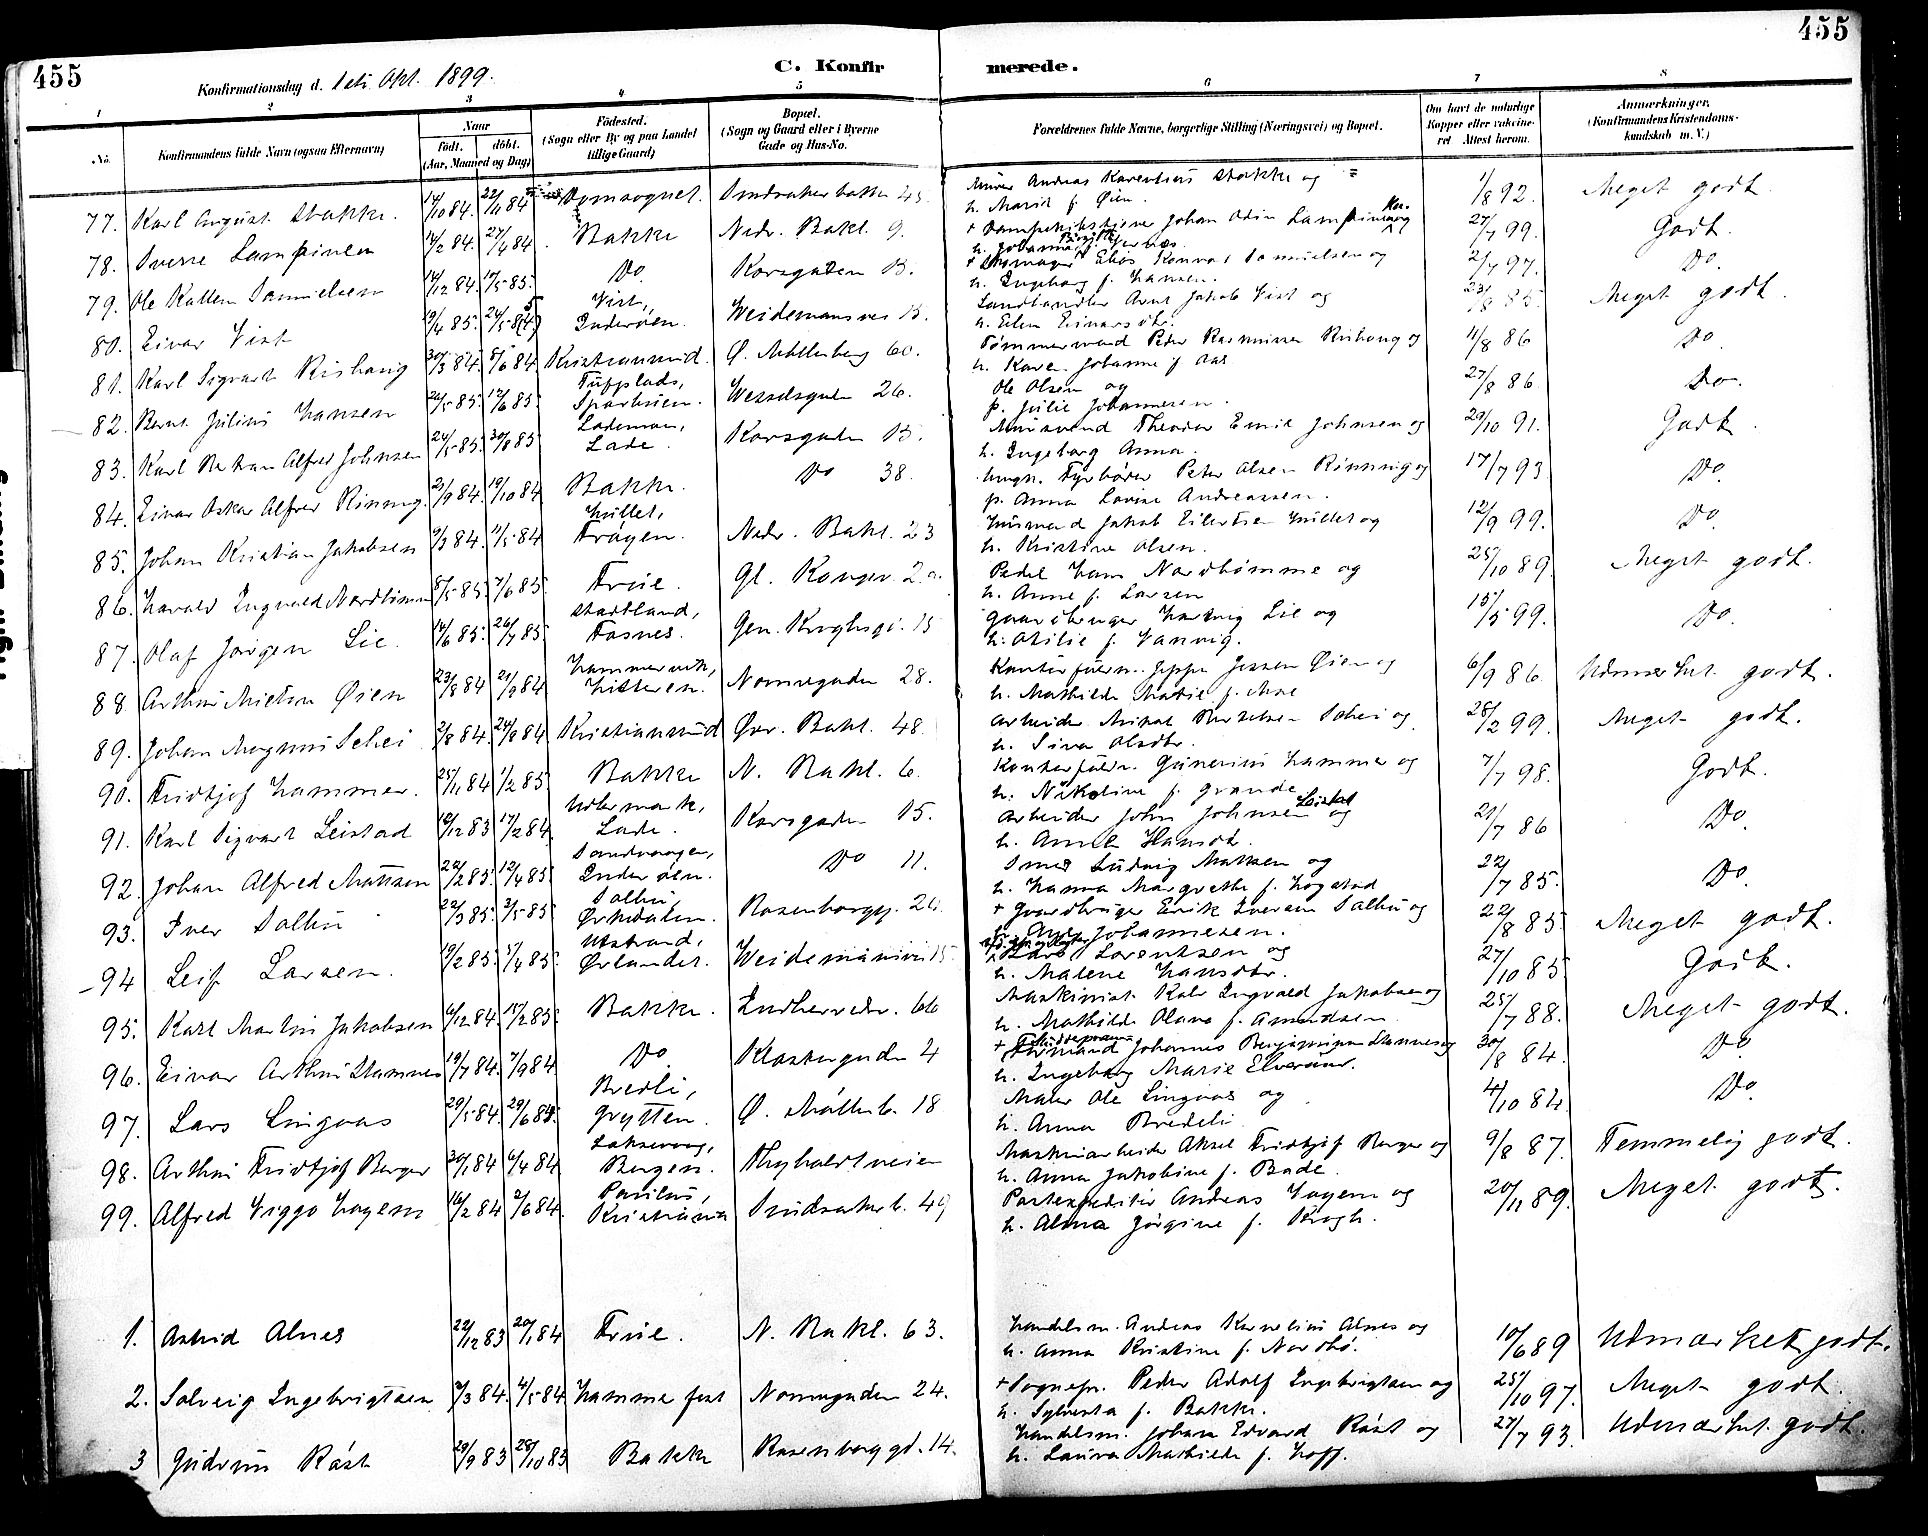 455
455
Konfirmationsdag d. 1ste Okt. 1899.
C. Konfirmerede.
1 2 3 4 5 6 7 8
No. Konfirmandens fulde Navn (ogsaa Efternavn) Naar født. døbt. (Aar, Maaned og Dag) Fødested. (Sogn eller By og paa Landet tillige Gaard) Bopæl. (Sogn og Gaard eller i Byerne Gade og Hus-No. Forældrenes fulde Navne, borgerlige Stilling (Næringsvei) og Bopæl. Om havt de naturlige Kopper eller vaccineret. Attest herom. Anmærkninger. (Konfirmandens Kristendomskundskab m. V.)
77. Karl August Stakke. 14/10 84. 22/11 84 Domsognet. Smurer Andreas Stakke og 1/8 92. Meget godt.
h. Marit f. Øien.
78. Sverre Lampinen 14/2 84. 27/4 84 Bakke Nedr. Bakl. 9. Johan Odin Lampinen og 27/7 99. Godt.
79. Ole Kallem Danielsen 14/12 84. 10/5 85. Do Korsgaden 13. Danielsen og 2/7 97. Do.
h. Ingeborg f. Hansen.
80. Einar Vist 19/4 85. 24/5 85 Vist, Inderøen. Weidemansvei 13. Landhandler Arnt Jakob Vist og Meget godt.
h. Elen Einarsdtr.
81. Karl Sigvart Rishaug 30/3 84. 8/6 84 Kristiansund. Ø. Møllenberg 60. Tømmermand Peder Rasmussen Rishaug og 11/8 86 Do
h. Karen Johanne f. Aas
82. Bernt Julius Hansen 26/5 85. 17/6 85. Tufplads, Sparbuen. Wesselsgaden 26. Ole Olsen og 27/8 86 Do.
p. Julie Johannesen.
83. Karl Alfred Johnsen 24/5 85. 30/8 85 Lademoen, Lade. Korsgaden 13. Theodor Emil Johnsen og 29/10 91. Godt.
h. Ingeborg Anna.
84. Einar Oskar Alfred Rinnig. 21/9 84. 19/10 84 Bakke. Do 38. ungk. Fyrbøder Peter Olsen Rinnig og 17/7 93 Do.
p. Anna Lovise Andreassen.
85. Johan Kristian Jakobsen 9/3 84. 11/5 84 Hullet, Frøyen. Nedr. Bakl. 23 Husmand Jakob Eilertsen Hullet og 12/9 99. Do.
h. Kristine Olsen.
86. Harald Ingvald Nordhømme 8/5 85. 7/6 85. Frue. Gl. Kongev. 2a. Pedel Hans Nordhømme og 25/10 89. Meget godt.
h. Anne f. Larsen
87. Olaf Jørgen Lie. 14/6 85. 26/7 85. Stadtland, Fosnes. Gen. Kroghsg. 15 Gaardbruger Hartvig Lie og 15/5 99. Do.
h. Otilie f. Vannvig.
88. Arthur Milton Øien 23/8 84 21/9 84 Hammervik, Hitteren. Nonnegaden 28. Kontorfuldm. Jeppe Jessen Øien og 6/9 86. Udmerket godt.
h. Mathilde Matie f. Moe
89. Johan Magnus Schei 2/8 84. 24/8 84 Kristiansund Øvr. Bakl. 48. Arbeider Mikal Schei og 28/2 99. Meget godt.
h. Sina Olsdtr.
90. Fridtjof Hammer. 25/11 84 1/2 85. Bakke N. Bakl. 6. Kontorfuldm. Gunerius Hammer og 7/7 98. Godt.
h. Nikoline f. Grande
91. Karl Sigvart Leistad 10/12 83 17/2 84. Lade. Korsgaden 15. Arbeider John Johnsen Leistad og 21/7 86 Do
h. Anne Hansdt.
92. Johan Alfred Matisen 22/2 85. 12/4 85. Sandvaagen, Inderøen. Do 11. Smed Ludvig Matisen og 22/7 85. Do.
h. Hanna Margrethe f. Hogstad
93. Iver Solhu 22/3 85. 3/5 85 Solhu, Ørkedalen. Rosenborgg. 20. + Gaardbruger Erik Iversen Solhu og 22/8 85. Meget godt.
Johannesen.
94 Leif Larsen. 19/2 85. 5/4 85. Utstrand, Ørlandet. Weidemansvei 15. Lars Lorentsen og 27/10 85 Godt.
h. Malene Hansdtr.
95. Karl Martin Jakobsen 6/12 84. 15/2 85. Bakke. Indherredv. 66 Maskinist Kolv Ingvald Jakobsen og 25/7 88. Meget godt.
h. Mathilde Olava f. Amundsen.
96. Einar Arthur Stamnes 19/7 84. 7/9 84 Do Klostergaden 4 Johannes Benjaminsen Stamnes og 30/8 84. Do.
h. Ingeborg Marie Elverum.
97. Lars Lingaas 29/5 84. 29/6 84. Bredli, Grytten. Ø. Mølleb. 18 Maler Ole Lingaas og 4/10 84. Do.
h. Anna Bredeli
98. Arthur Fridtjof Berger 30/1 84 6/4 84 Laksevaag, Bergen. Thyholdtveien Maskinarbeider Aksel Fridtjof Berger og 9/8 87. Temmelig godt.
h. Anna Jakobine f. Bade.
99. Alfred Viggo Hagem 16/2 84 2/6 84. Paulus, Kristiania 49 Postexpeditør Andreas Hagem og 20/11 89. Meget godt.
h. Alma Jørgine f. Krogh.
1. Astrid Alnes 22/12 83 20/1 84 Frue. N. Bakl. 63. Handelsm. Andreas Kornelius Alnes og 10/6 89 Udmærket godt.
h. Anna Kristine f. Nordbø.
2. Solveig Ingebrigtsen 3/3 84. 4/5 84. Hammerfest Nonnegaden 24. + Sognepr. Peder Adolf Ingebrigtsen og 25/10 97. Meget godt.
h. Sylvesta f. Bakke.
3 Gudrun Røst 29/9 83 28/10 83 Bakke Rosenborggd. 14. Handelsm. Johan Edvard Røst og 27/7 93. Udmærket godt.
h. Laura Mathilde f. Hoff.